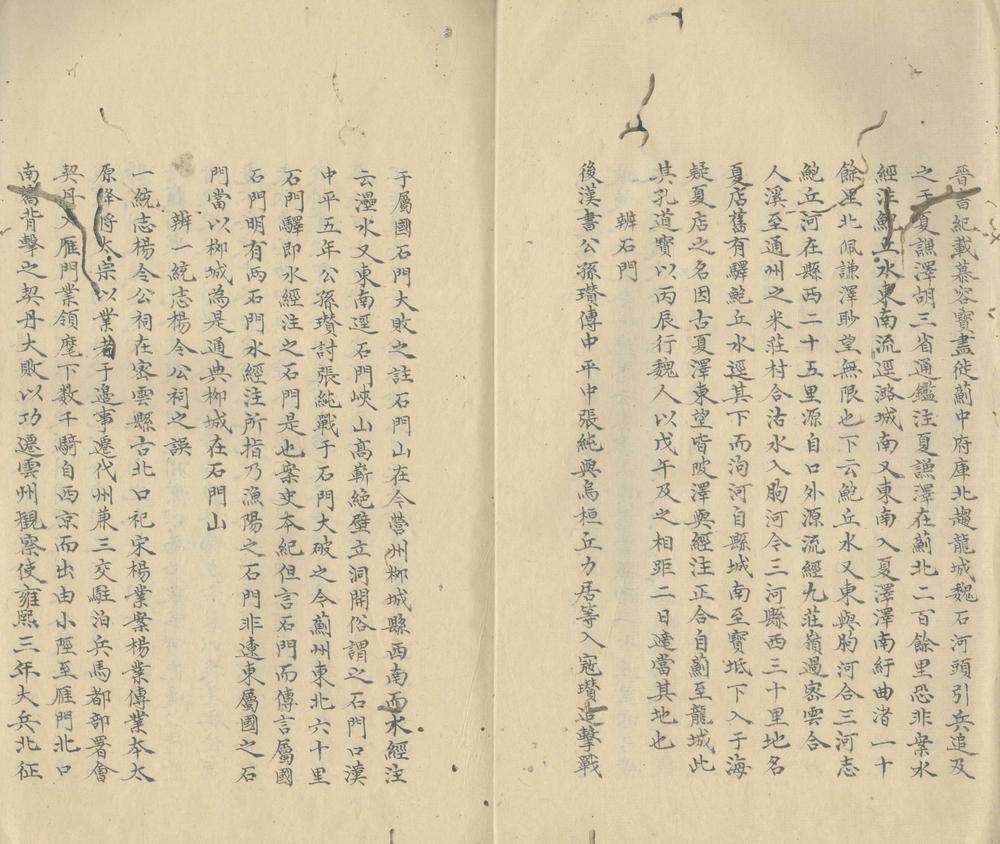 晉書紀載慕容寶盡徙薊中府庫北趨龍城魏石河頭引兵追及
之于夏謙澤胡三省通鑑注夏謙澤在薊北二百餘里恐非案水
經注鮑丘水東南流逕潞城南又東南入夏澤澤南紆曲渚一十
餘里北佩謙澤眇望無限也下云鮑丘水又東與朐河合三河志
鮑丘河在縣西二十五里源自口外源流經九莊嶺過密雲合
人溪至通州之米莊村合沽水入朐河今三河縣西三十里地名
夏店舊有驛鮑丘水逕其下而泃河自縣城南至寶坻下入于海
疑夏店之名因古夏澤東望皆陂澤與經注正合自薊至龍城此
其孔道寶以丙辰行魏人以戊午及之相距二日達當其地也
辨石門
後漢書公孫瓚傳中平中張純與烏桓丘力居等入寇瓚追擊戰
于屬國石門大敗之註石門山在今營州柳城縣西南而水經注
云灅水又東南逕石門峽山高嶄絶壁立洞開俗謂之石門口漢
中平五年公孫瓚討張純戰于石門大破之今薊州東北六十里
石門驛即水經注之石門是也案史本紀但言石門而傳言屬國
石門明有兩石門水經注所指乃漁陽之石門非遼東屬國之石
門當以柳城為是通典柳城在石門山
辨一統志楊令公祠之誤
一統志楊令公祠在密雲縣古北口祀宋楊業案楊業傳業本太
原降將太宗以業老于邊事遷代州兼三交駐泊兵馬都部署會
契丹入雁門業領麾下数千騎自西京而出由小陘至雁門北口
南嚮背擊之契丹大敗以功遷雲州觀察使雍熙三年大兵北征